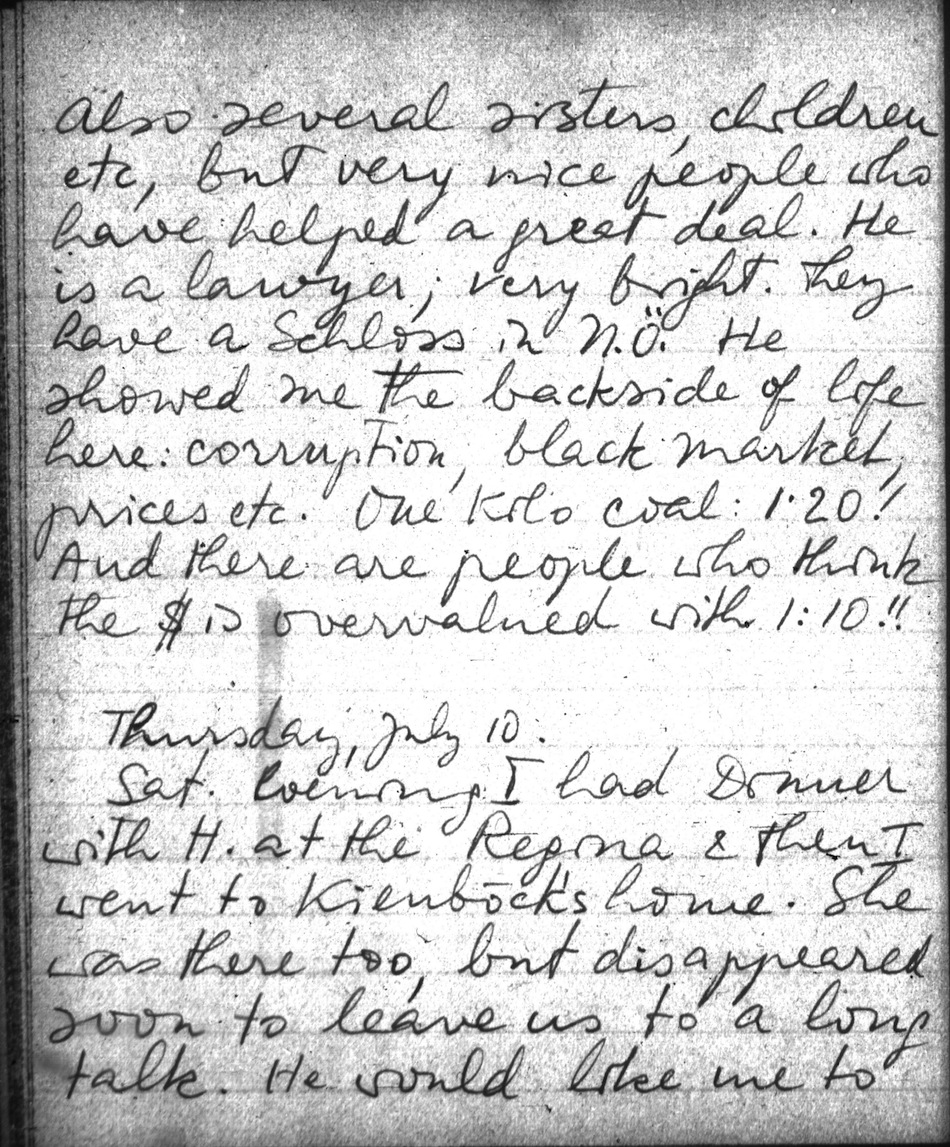 also several sisters, children
etc, but very nice people who
have helped a great deal. He
is a lawyer; very bright. They
have a Schloss in N.Ö. He
showed me the backside of life
here: corruption, black market,
prices etc. One Kilo coal: 1.20!
And there are people who think
the $ is overvalued with 1:10!!
Thursday, July 10.
Sat. Evening I had Dinner
with H. at the Regina & then I
went to Kienböck's home. She
was there too, but disappeared
soon to leave us to a long
talk. He would like me to